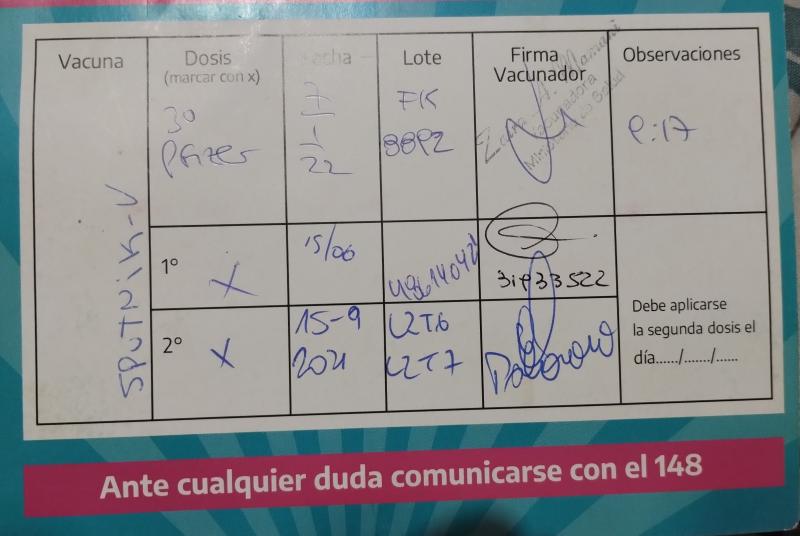 Vacuna
Dosis
(marcar con x)
Fecha
Lote
Firma
Vacunador
Observaciones
3º
Pfizer
7
1
22
FK
8892
Vacunadora
Ministerio de Salud
P:17
SPUTNIK-V
1º
X
15/06
Debe aplicarse
la segunda dosis el
día....../......./......
2º
X
15-9
2021
L2T6
L2T7
Ante cualquier duda comunicarse con el 148